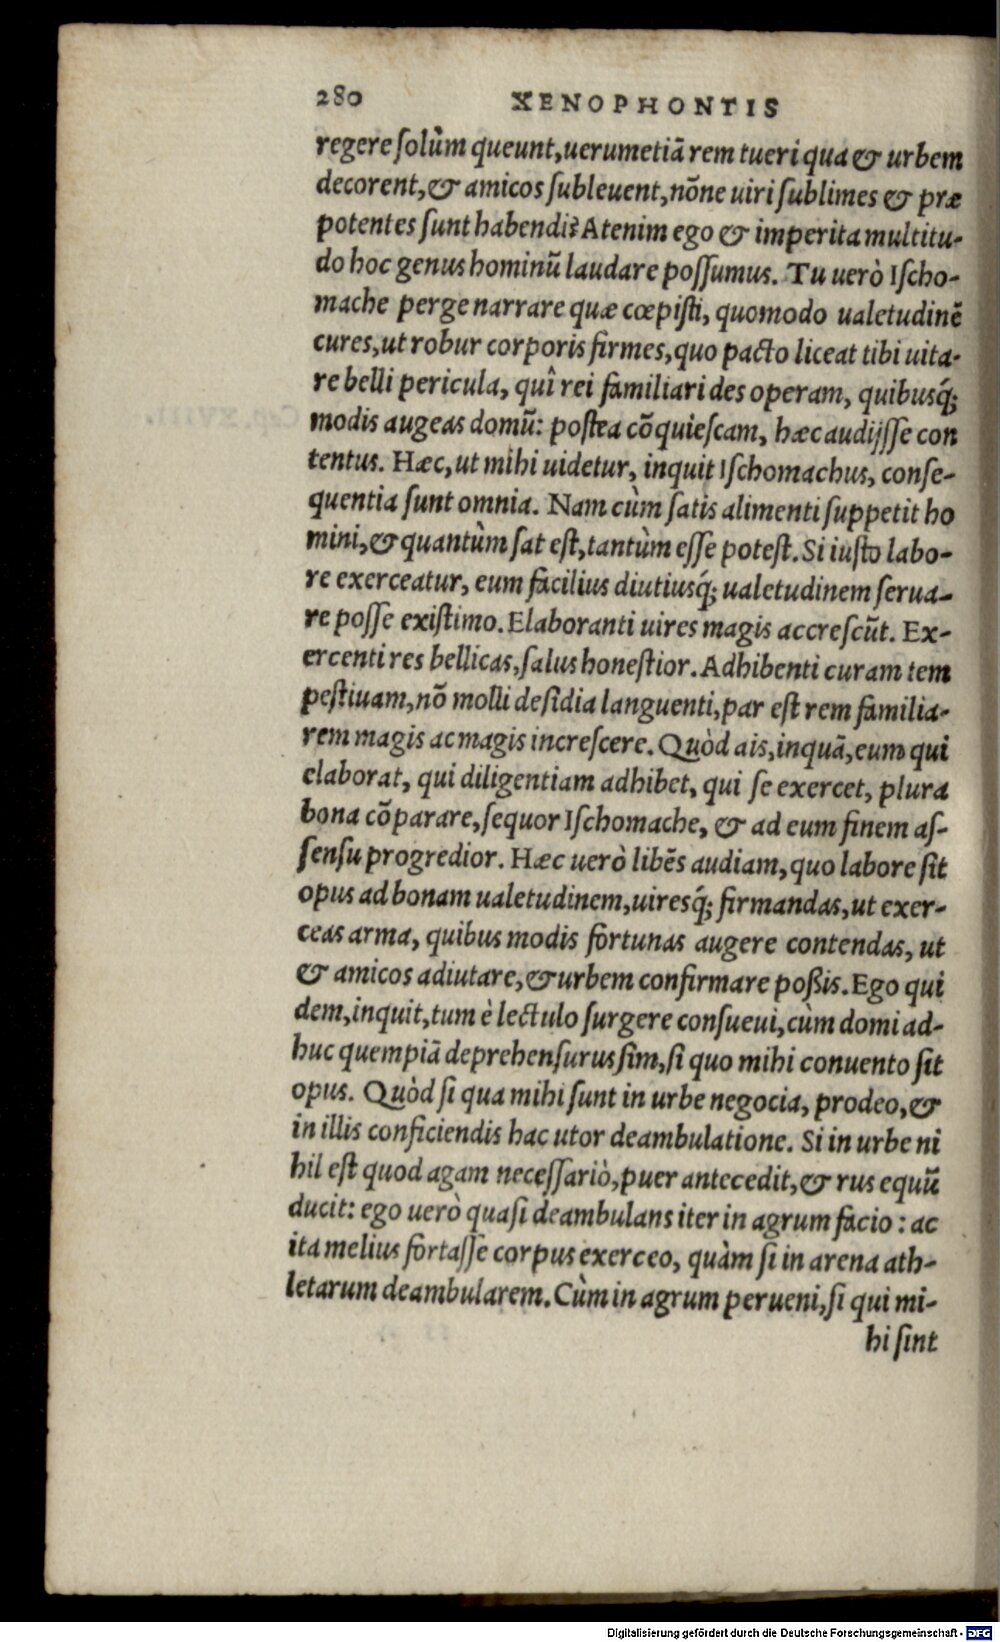 280 XENOPHONTIS
regere ſolùm queunt, uerumetiã rem tueri qua & urbem
decorent, & amicos ſubleuent, nõne uiri ſublimes & præ
potentes ſunt habendi? Atenim ego & imperita multitu-
do hoc genus hominũ laudare poſſumus. Tu uerò Iſcho-
mache perge narrare quæ cœpiſti, quomodo ualetudinẽ
cures, ut robur corporis firmes, quo pacto liceat tibi uita-
re belli pericula, quî rei familiari des operam, quibusq́;
modis augeas domũ: poſtea cõquieſcam, hæc audijſſe con
tentus. Hæc, ut mihi uidetur, inquit Iſchomachus, conſe-
quentia ſunt omnia. Nam cùm ſatis alimenti ſuppetit ho
mini, & quantùm ſat eſt, tantùm eſſe poteſt. Si iuſto labo-
re exerceatur, eum facilius diutiusq́; ualetudinem ſerua-
re poſſe exiſtimo. Elaboranti uires magis accreſcũt. Ex-
ercenti res bellicas, ſalus honeſtior. Adhibenti curam tem
peſtiuam, nõ molli deſidia languenti, par eſt rem familia-
rem magis ac magis increſcere. Quòd ais, inquã, eum qui
elaborat, qui diligentiam adhibet, qui ſe exercet, plura
bona cõparare, ſequor Iſchomache, & ad eum finem aſ-
ſenſu progredior. Hæc uerò libẽs audiam, quo labore ſit
opus ad bonam ualetudinem, uiresq́; firmandas, ut exer-
ceas arma, quibus modis fortunas augere contendas, ut
& amicos adiutare, & urbem confirmare poßis. Ego qui
dem, inquit, tum è lectulo ſurgere conſueui, cùm domi ad-
huc quempiã deprehenſurus ſim, ſi quo mihi conuento ſit
opus. Quòd ſi qua mihi ſunt in urbe negocia, prodeo, &
in illis conficiendis hac utor deambulatione. Si in urbe ni
hil eſt quod agam neceſſariò, puer antecedit, & rus equũ
ducit: ego uerò quaſi deambulans iter in agrum facio: ac
ita melius fortaſſe corpus exerceo, quàm ſi in arena ath-
letarum deambularem. Cùm in agrum perueni, ſi qui mi-
hi ſint
Digitalisierung gefördert durch die Deutsche Forschungsgemeinschaft - DFG